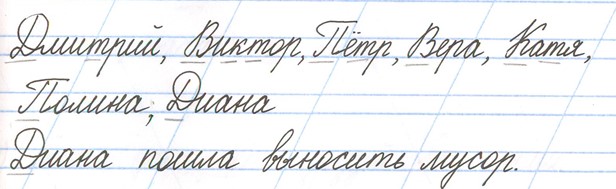 Дмитрий, Виктор, Пётр, Вера, Катя,
Полина, Диана
Диана пошла выносить мусор.